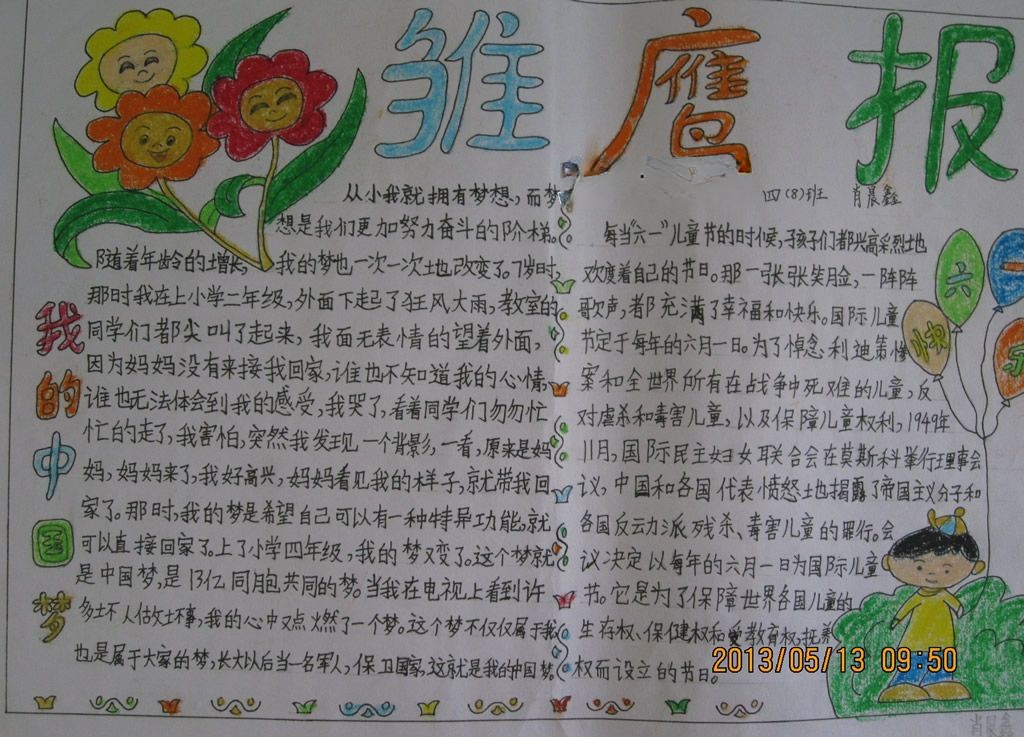 雏鹰报
四(8)班 肖晨鑫
我的中国梦
从小我就拥有梦想,而梦
想是我们更加努力奋斗的阶梯。
随着年龄的增长,我的梦也一次一次地改变了。7岁时,
那时我在上小学二年级,外面下起了狂风大雨,教室的
同学们都尖叫了起来,我面无表情的望着外面,
因为妈妈没有来接我回家,谁也不知道我的心情,
谁也无法体会到我的感受,我哭了,看着同学们匆匆忙
忙的走了,我害怕,突然我发现一个背影,一看,原来是妈
妈,妈妈来了,我好高兴,妈妈看见我的样子,就带我回
家了。那时,我的梦是希望自己可以有一种特异功能,就
可以直接回家了。上了小学四年级,我的梦又变了。这个梦就
是中国梦,是13亿同胞共同的梦。当我在电视上看到许
多坏人做坏事,我的心中又点燃了一个梦。这个梦不仅仅属于我
也是属于大家的梦,长大以后当一名军人,保卫国家,这就是我的中国梦。
每当“六一”儿童节的时候,孩子们都兴高采烈地
欢度着自己的节日。那一张张笑脸,一阵阵
歌声,都充满了幸福和快乐。国际儿童
节定于每年的六月一日。为了悼念利迪策惨
案和全世界所有在战争中死难的儿童,反
对虐杀和毒害儿童,以及保障儿童权利,1949年
11月,国际民主妇女联合会在莫斯科举行理事会
议,中国和各国代表愤怒地揭露了帝国主义分子和
各国反动派残杀、毒害儿童的罪行。会
议决定以每年的六月一日为国际儿童
节。它是为了保障世界各国儿童的
生存权、保健权和受教育权,抚养
权而设立的节日。
六一
快乐
2013/05/13 09:50
肖晨鑫